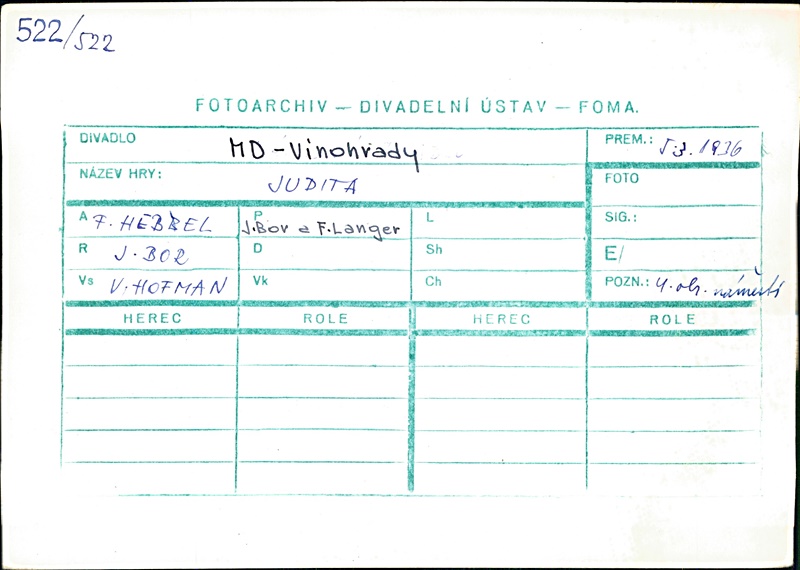 522/522
FOTOARCHIV — DIVADELNÍ ÚSTAV — FOMA.
DIVADLO MD-Vinohrady PREM.: 5.3.1936
NÁZEV HRY: JUDITA FOTO
A F. HEBBEL P J.Bor a F.Langer L SIG.:
R J. BOR D Sh E/
Vs V. HOFMAN Vk Ch POZN.: 4. obr. náměstí
HEREC ROLE HEREC ROLE